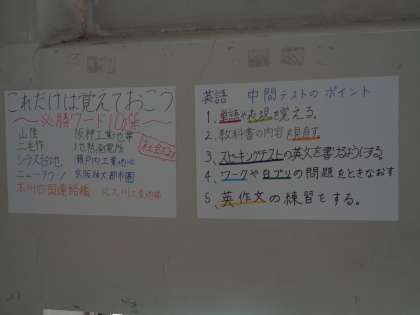 これだけは覚えておこう
〜必勝ワード10選〜
山陰 阪神工業地帯
二毛作 地熱発電所
シラス台地 瀬戸内工業地域
ニュータウン 京阪神大都市圏
本州四国連絡橋 北九州工業地帯
社会
英語 中間テストのポイント
1、単語や表現を覚える。
2、教科書の内容を見直す
3、スピーキングテストの英文を書けるようにする。
4、ワークや白プリの問題をときなおす
5、英作文の練習をする。